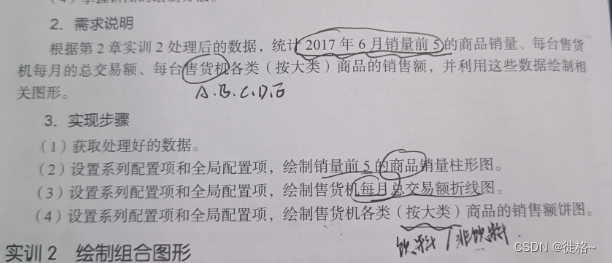 2. 需求说明
根据第 2 章实训 2 处理后的数据，统计 2017 年 6 月销量前 5 的商品销量、每台售货
机每月的总交易额、每台售货机各类（按大类）商品的销售额，并利用这些数据绘制相
关图形。
A.B.C.D.E
3. 实现步骤
（1）获取处理好的数据。
（2）设置系列配置项和全局配置项，绘制销量前 5 的商品销量柱形图。
（3）设置系列配置项和全局配置项，绘制售货机每月总交易额折线图。
（4）设置系列配置项和全局配置项，绘制售货机各类（按大类）商品的销售额饼图。
饮料 / 非饮料
实训 2 绘制组合图形
CSDN @徙格~